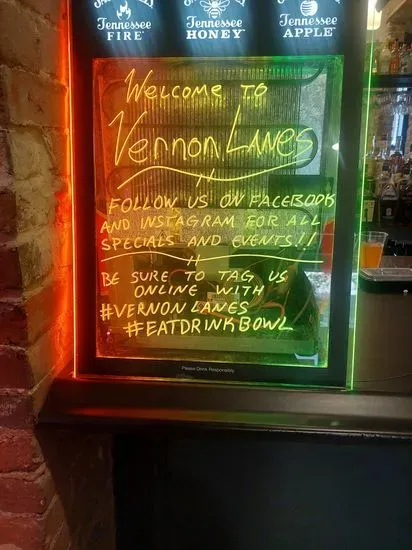 Tennessee Tennessee Tennessee
FIRE HONEY APPLE
WELCOME TO
VERNON LANES
FOLLOW US ON FACEBOOK
AND INSTAGRAM FOR ALL
SPECIALS AND EVENTS!!
BE SURE TO TAG US
ONLINE WITH
#VERNON LANES
#EATDRINKBOWL
Please Drink Responsibly.